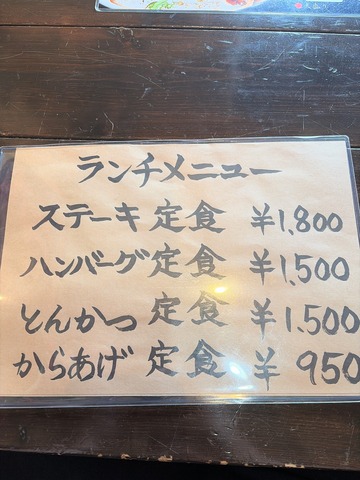 ランチメニュー
ステーキ定食 ¥1,800
ハンバーグ定食 ¥1,500
とんかつ 定食 ¥1.500
からあげ 定食 ¥ 950